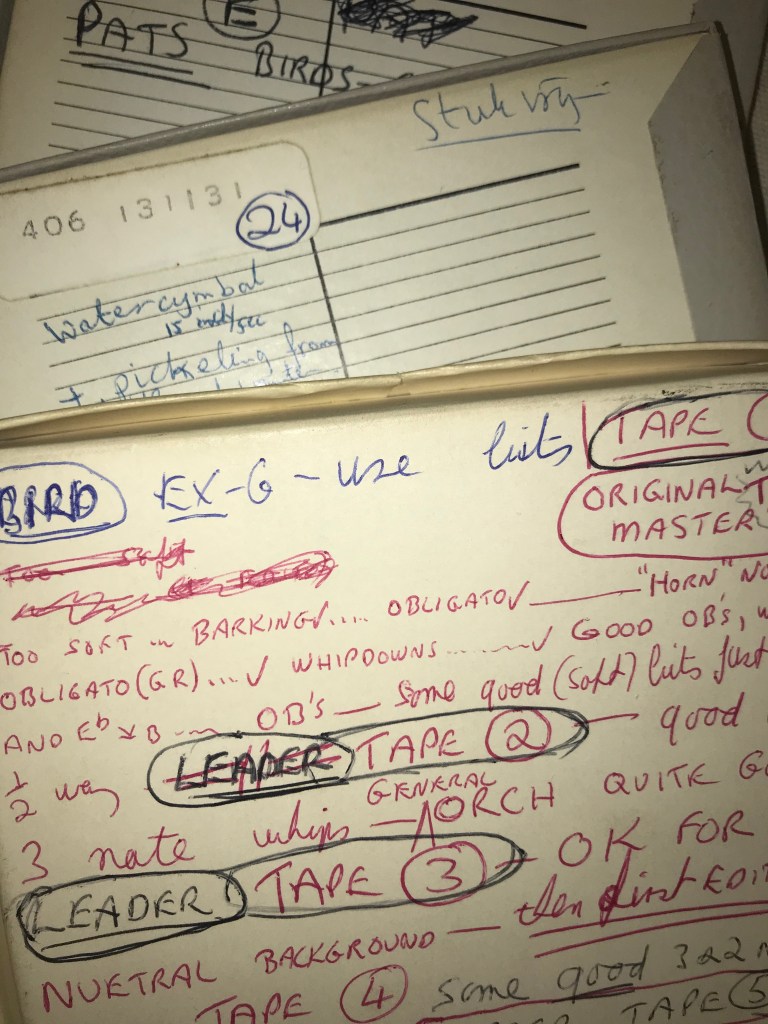 E
PATS
BIRDS-
406 131131
24
Watercymbal
15 inch/sec
+ pickeling from
BIRD EX-G - use bits TAPE
ORIGINAL
MASTER
TOO SOFT ... BARKING✓.... OBLIGATO✓ "HORN" NO
OBLIGATO (GR)...✓ WHIPDOWNS.......✓ GOOD OB'S, W
AND Eb B ... OB'S — some good (soft) bits just
½ way LEADER TAPE 2 — good
3 note whips — GENERAL ORCH QUITE G
LEADER TAPE 3 — OK FOR
then first EDIT
NUETRAL BACKGROUND —
TAPE 4 some good 3 & 2 N
TAPE 5